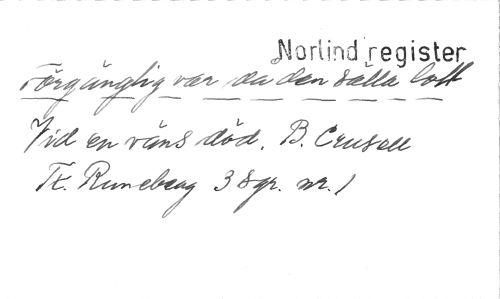 Norlind register
Förgänglig var då den sälla lott
Vid en väns död. B. Crusell
Tx. Runeberg 3 sgr. nr. 1